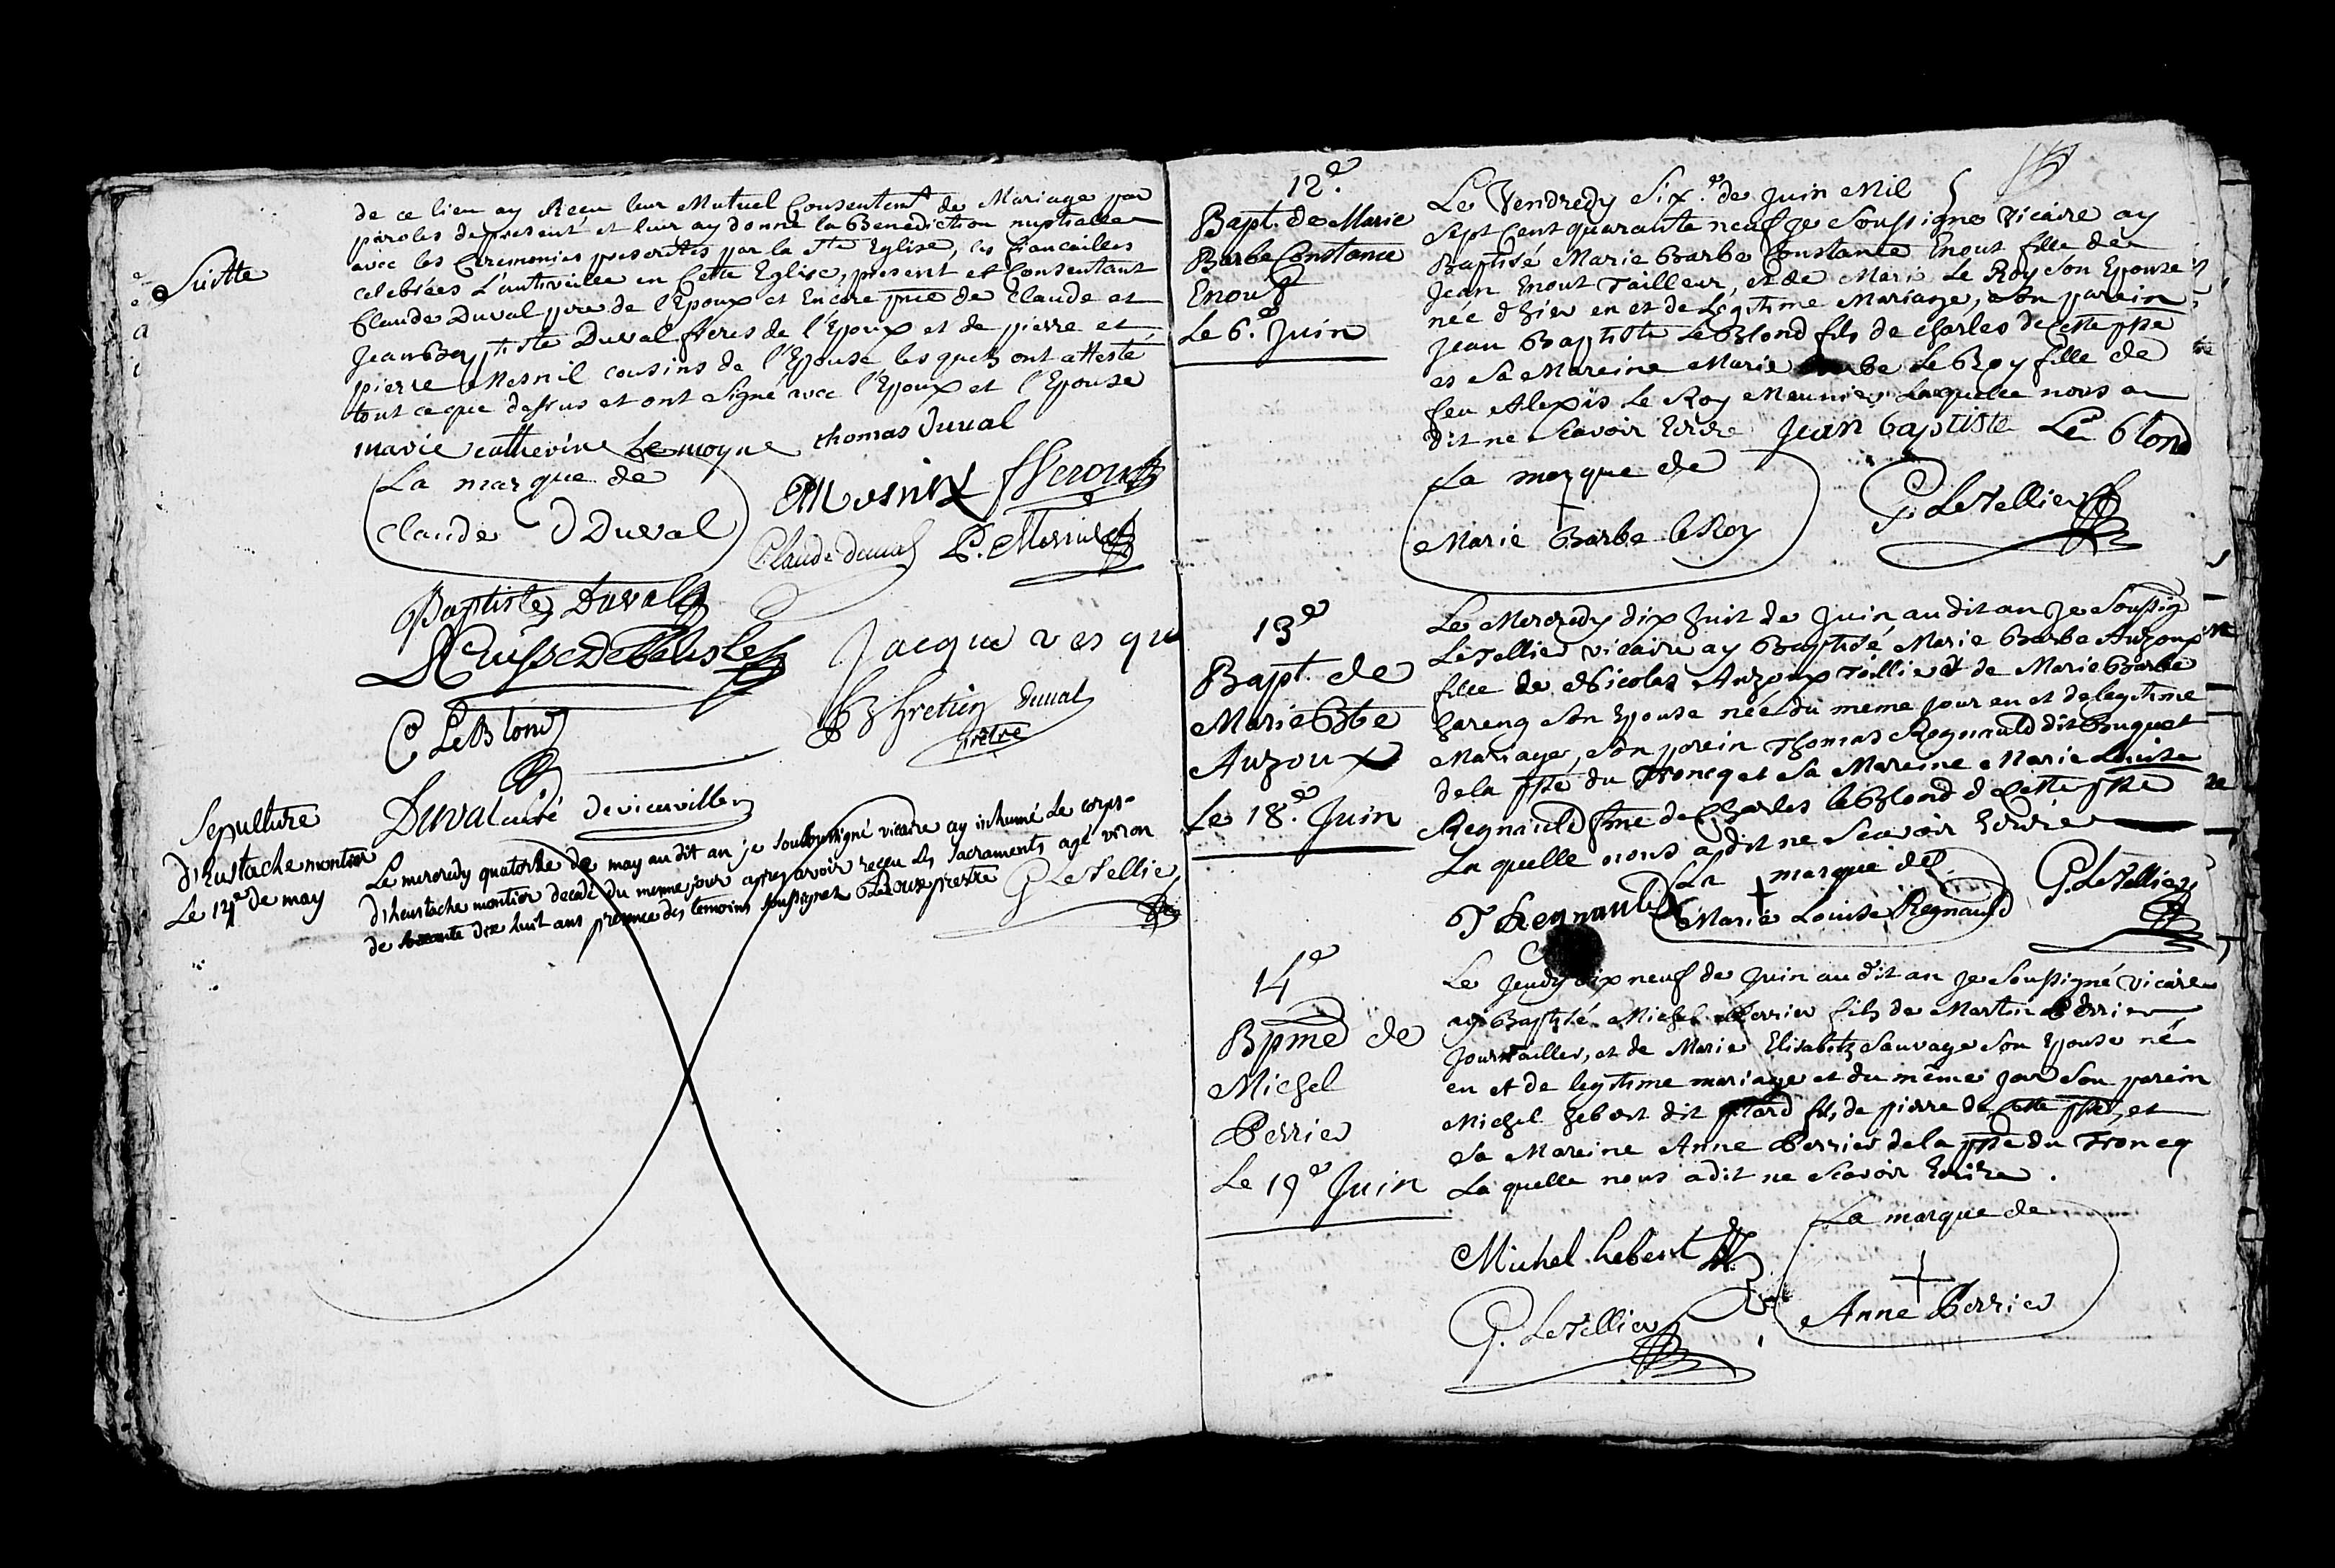 Suitte
de ce lieu ay Reçu leur Mutuel Consentemt de Mariage par
paroles de present et leur ay donné la Benediction nuptialle
avec les Ceremonies prescrittes par la Ste Eglise, les fiancailles
celebrées L'antiveille en Cette Eglise, present et Consentant
Claude Duval pere de l'Epoux et Encore pnce de Claude et
Jean Baptiste Duval freres de l'Epoux et de pierre et
pierre Mesnil cousins de l'Epouse lesquels ont attesté
tout ce que dessus et ont signé avec l'Epoux et l'Epouse
marie catherine Lemoyne thomas duval
La marque de
Claude D Duval
Claude duval P. Mesnil
Baptiste Duval
Jacque ves que
C LeBlond
Chretien Duval
prêtre
Duval curé de vicuville
Sepulture
d'Eustache montier
Le 14e de may
Le mercredy quatorze de may audit an je soubssigné vicaire ay inhumé Le corps
d'heustache montier decedé du meme jour apres avoir reçeu Ls sacraments agé viron
de soixante dix huit ans presence des temoins soussignez
G LeTellier
12e.
Bapt. de Marie
Barbe Constance
Enouf
Le 6e. Juin
Le Vendredy Six.e de Juin Mil
Sept Cent quarante neuf Je Soussigné Vicaire ay
Baptisé Marie Barbe Constance Enout fille de
Jean Enout Tailleur, et de Marie Le Roy Son Epouse
née d'hier en et de Legitime Mariage, Son parein
Jean Baptiste LeBlond fils de Charles de Cette psse
et Sa Mareine Marie Barbe Le Roy fille de
feu Alexis Le Roy Meunier Laquelle nous a
dit ne Scavoir Ecrire Jean baptiste Le blond
La marque de
Marie Barbe le Roy
G. LeTellier
13e
Bapt. de
Marie Bbe
Auzoux
Le 18e. Juin
Le Mercredy dix huit de Juin audit an Je Soussig
LeTellier vicaire ay Baptisé Marie Barbe Auzoux
fille de Nicolas Auzoux Toillier et de Marie Barbe
hareng Son Epouse née du meme jour en et de legitime
Mariage, Son parein Thomas Regnauld dit Buquet
de la psse du Troncq et Sa Mareine Marie Louise
Regnauld fme de Charles leBlond de Cette psse
La quelle nous a dit ne Scavoir Ecrire
T Regnauld
La marque de
Marie Louise Regnauld
G. LeTellier
14e
Bpme de
Michel
Perrier
Le 19e Juin
Le Jeudy dix neuf de Juin audit an Je Soussigné vicaire
ay Baptisé Michel Perrier fils de Martin Perrier
Journallier, et de Marie Elisabeth Sauvage Son Epouse né
en et de legitime mariage et du même Jour Son parein
Michel hebert dit fils de pierre de Cette psse, et
Sa Mareine Anne Perrier de la psse du Troncq
La quelle nous a dit ne Scavoir Ecrire.
Michel hebert
La marque de
Anne Perrier
G. LeTellier